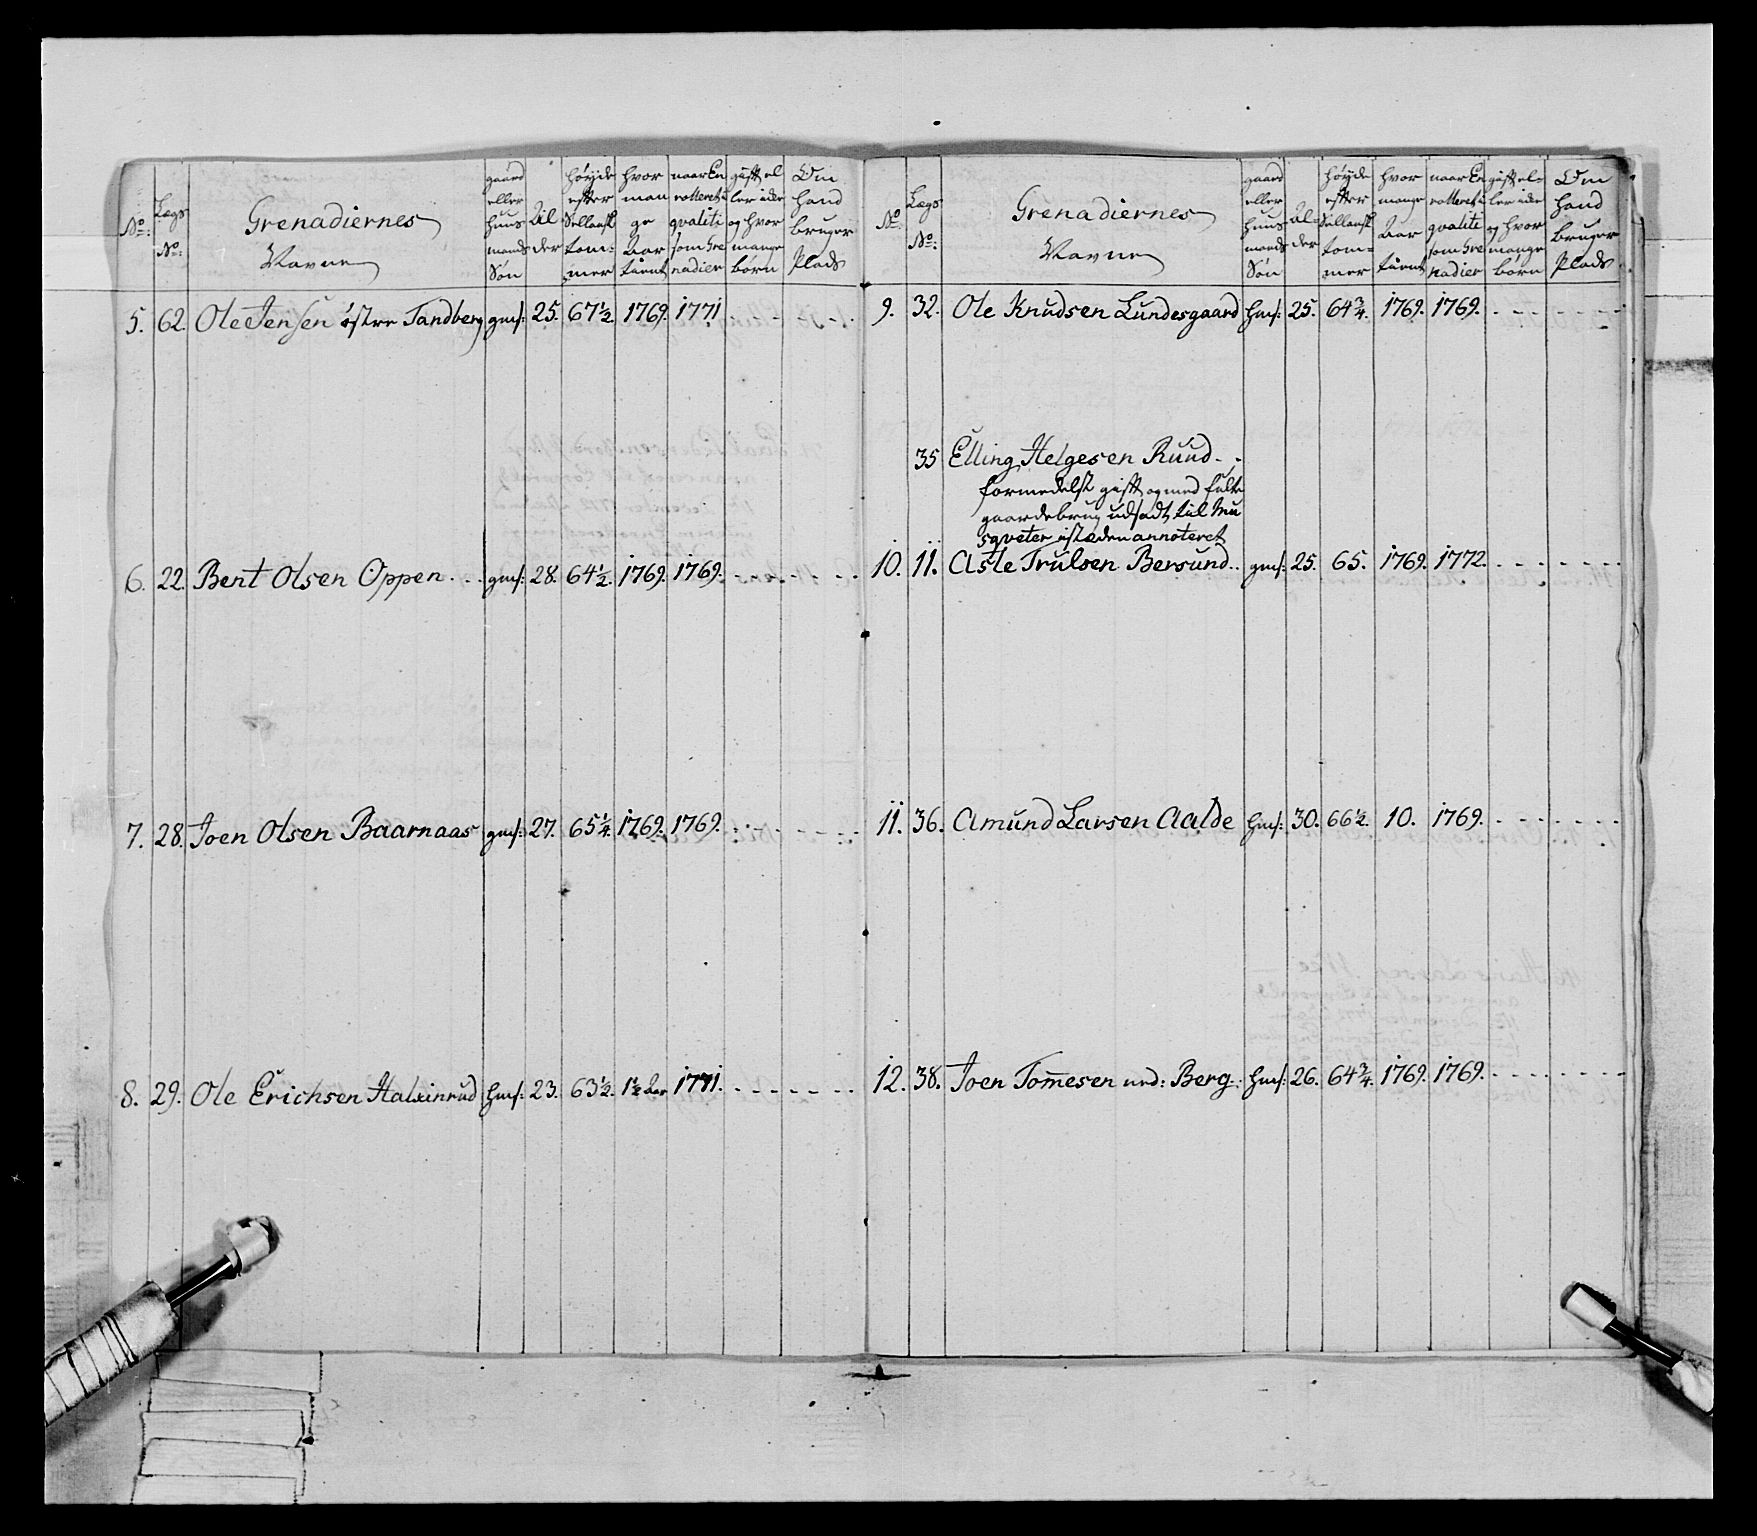 No:
Lægs
No:
Grenadiernes
Navne
gaard
eller
huus
mands
Søn
Al
der
høyde
efter
Sellandsk
tom-
mer
hvor
man
ge
Aar
tient
naar En
rolleret i
qvalite
som Gre
nadier
gift el
ler icke
og hvor
mange
børn
Om
hand
bruger
Plads
5. 62. Ole Jensen østre Tandberg gms: 25. 67½. 1769. 1771. - - - -
6. 22. Bent Olsen Oppen. . . gms: 28. 64½. 1769. 1769. - - - -
7. 28. Joen Olsen Baarnaas gms: 27. 65¼. 1769. 1769. - - - -
8. 29. Ole Erichsen Halxinrud hms: 23. 63½. 1½ Aar 1771. - - - -
No:
Lægs
No:
Grenadiernes
Navne
gaard
eller
huus
mands
Søn
Al-
der
høyde
efter
Sellandsk
tom-
mer
hvor
mange
Aar
tient
naar En
rolleret i
qvalite
som Gre
nadier
gift el-
ler icke
og hvor
mange
børn
Om
hand
bruger
Plads
9. 32. Ole Knudsen Lundesgaard hms: 25. 64¾. 1769. 1769. - - - -
35 Elling Helgesen Ruud. .
formedelst gift og med fulte
gaardebrug udsadt til Mu
sqveter isteden annoteret
10. 11. Asle Trulsen Bersund. . gms: 25. 65. 1769. 1772. - - - -
11. 36. Amund Larsen Aalde hms: 30. 66½. 10. 1769. - - - -
12. 38. Joen Tom̄esen ned: Berg. hms: 26. 64¾. 1769. 1769. - - - -